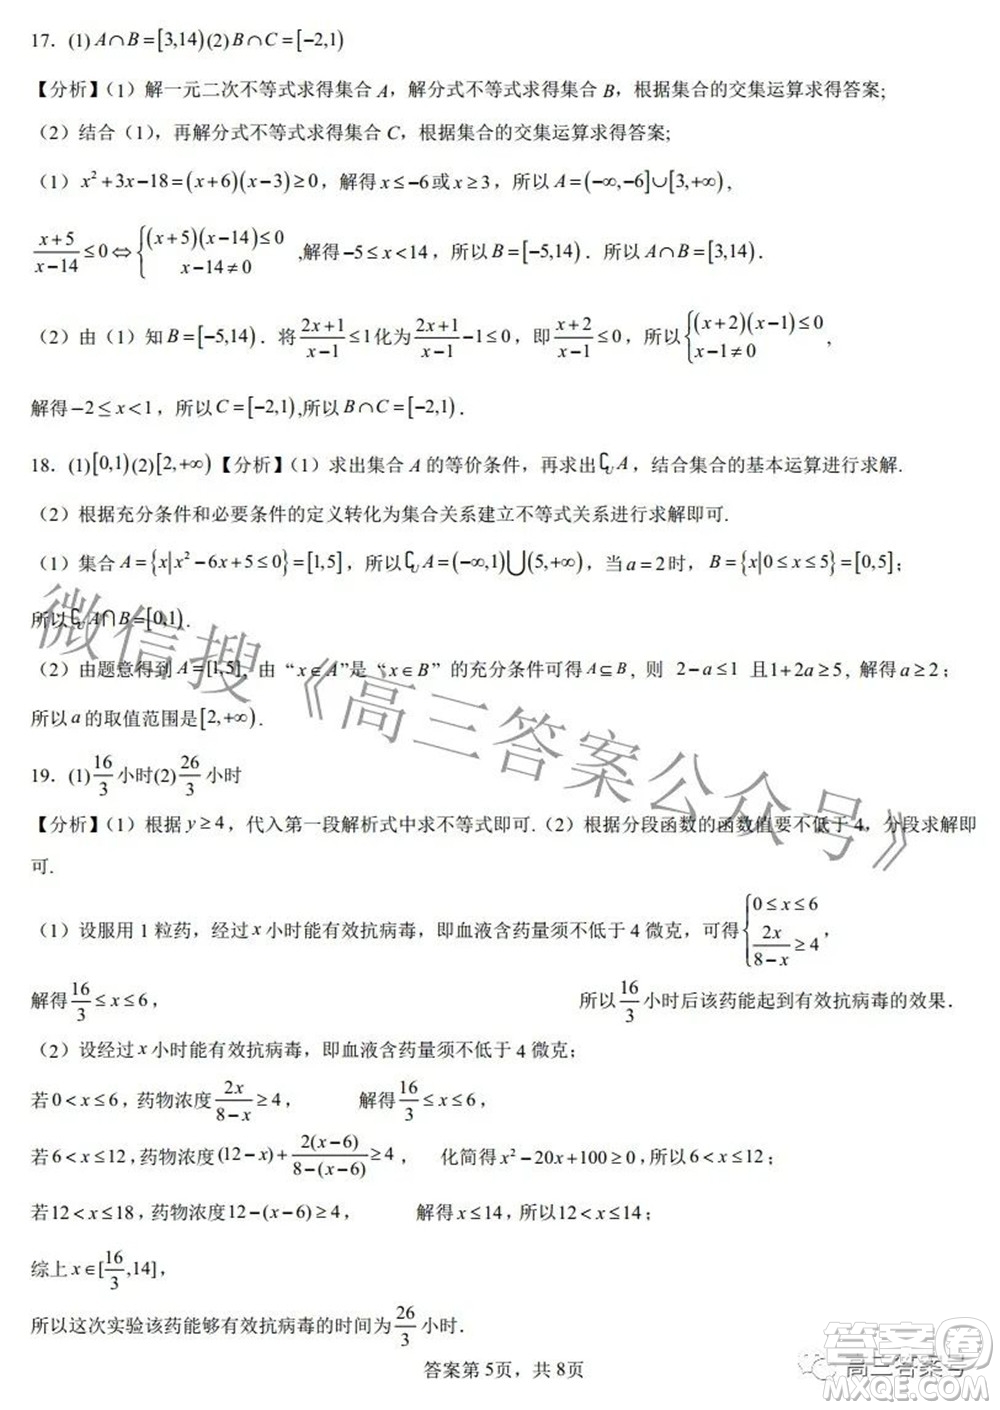 17．(1) A∩B=[3,14)(2) B∩C=[−2,1)
【分析】（1）解一元二次不等式求得集合 A，解分式不等式求得集合 B，根据集合的交集运算求得答案;
（2）结合（1），再解分式不等式求得集合 C，根据集合的交集运算求得答案;
（1）x²+3x−18=(x+6)(x−3)≥0，解得 x≤−6或 x≥3，所以 A=(−∞,−6]∪[3,+∞)，
(x+5)/(x−14)≤0⇔{(x+5)(x−14)≤0, x−14≠0 ,解得−5≤x<14，所以 B=[−5,14)．所以 A∩B=[3,14)．
（2）由（1）知 B=[−5,14)．将(2x+1)/(x−1)≤1化为(2x+1)/(x−1)−1≤0，即(x+2)/(x−1)≤0，所以{(x+2)(x−1)≤0, x−1≠0，
解得−2≤x<1，所以 C=[−2,1),所以 B∩C=[−2,1)．
18．(1)[0,1)(2)[2,+∞)【分析】（1）求出集合 A 的等价条件，再求出∁UA，结合集合的基本运算进行求解.
（2）根据充分条件和必要条件的定义转化为集合关系建立不等式关系进行求解即可.
（1）集合 A={x|x²−6x+5≤0}=[1,5]，所以∁UA=(−∞,1)⋃(5,+∞)，当 a=2时，B={x|0≤x≤5}=[0,5]；
所以∁UA∩B=[0,1)．
（2）由题意得到 A=[1,5]，由 “x∈A”是 “x∈B” 的充分条件可得 A⊆B，则 2−a≤1 且1+2a≥5，解得 a≥2；
所以 a 的取值范围是[2,+∞)．
19．(1)16/3小时(2)26/3小时
【分析】（1）根据 y≥4，代入第一段解析式中求不等式即可.（2）根据分段函数的函数值要不低于 4，分段求解即
可.
（1）设服用 1 粒药，经过 x 小时能有效抗病毒，即血液含药量须不低于 4 微克，可得{0≤x≤6, 2x/(8−x)≥4，
解得16/3≤x≤6， 所以16/3小时后该药能起到有效抗病毒的效果．
（2）设经过 x 小时能有效抗病毒，即血液含药量须不低于 4 微克；
若 0<x≤6，药物浓度2x/(8−x)≥4， 解得16/3≤x≤6，
若 6<x≤12，药物浓度(12−x)+2(x−6)/(8−(x−6))≥4， 化简得 x²−20x+100≥0，所以 6<x≤12；
若12<x≤18，药物浓度12−(x−6)≥4， 解得 x≤14，所以12<x≤14；
综上 x∈[16/3,14]，
所以这次实验该药能够有效抗病毒的时间为26/3小时．
答案第 5页，共 8页
微信搜《高三答案公众号》
高三答案号
答案卷
MXQE.COM